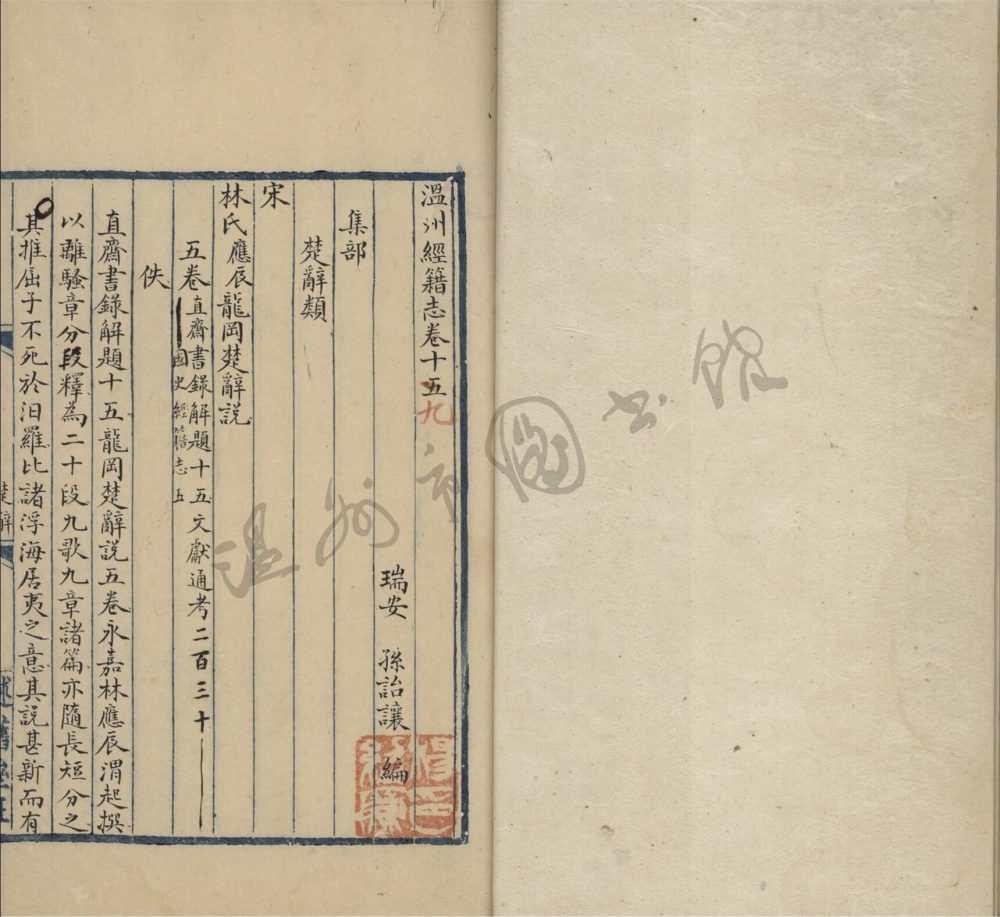 溫州經籍志卷十五九
瑞安 孫詒讓 編
集部
楚辭類
宋
林氏應辰龍岡楚辭說
五卷直齋書錄解題十五文獻通考二百三十
國史經籍志五
佚
直齋書錄解題十五龍岡楚辭說五卷永嘉林應辰渭起撰
以離騷章分段釋為二十段九歌九章諸篇亦隨長短分之
其推屈子不死於汨羅比諸浮海居夷之意其說甚新而有
楚辭
溫州市圖書館